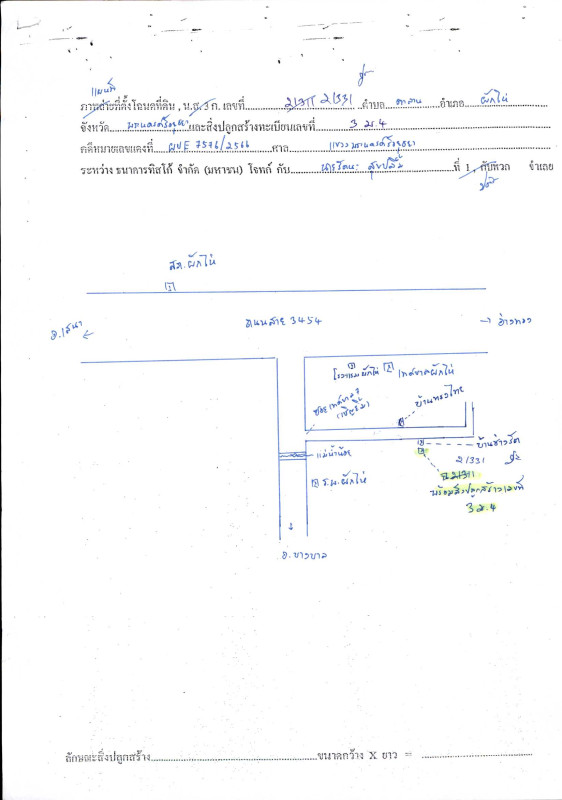 แผนที่
ภาพถ่ายที่ตั้งโฉนดที่ดิน , น.ส. 3 ก. เลขที่ 21311 21331 ตำบล ตาลาน อำเภอ ผักไห่
จังหวัด พระนครศรีอยุธยา และสิ่งปลูกสร้างทะเบียนเลขที่ 3 ม.4
คดีหมายเลขแดงที่ ผบE 7576/2566 ศาล แขวงพระนครศรีอยุธยา
ระหว่าง ธนาคารทิสโก้ จำกัด (มหาชน) โจทก์ กับ ที่ 1 , กับพวก จำเลย
สภ.ผักไห่
อ.เสนา
ถนนสาย 3454
อ่างทอง
โรงแรมผักไห่
เทศบาลผักไห่
บ้านทรงไทย
แม่น้ำน้อย
ร.พ.ผักไห่
21331
21311
พร้อมสิ่งปลูกสร้างเลขที่
3 ม.4
อ.บางบาล
ลักษณะสิ่งปลูกสร้าง ขนาดกว้าง X ยาว =